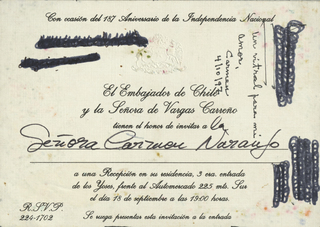 Con ocasión del 187 Aniversario de la Independencia Nacional
un vitral para mi
amor,
Carmen
4/10/97
El Embajador de Chile
y la Señora de Vargas Carreño
tienen el honor de invitar a la
Señora Carmen Naranjo
a una Recepción en su residencia, 3 ra. entrada
de los Yoses, frente al Automercado 225 mts. Sur
el día 18 de septiembre a las 19:00 horas.
R.S.V.P.
224-1702
Se ruega presentar esta invitación a la entrada